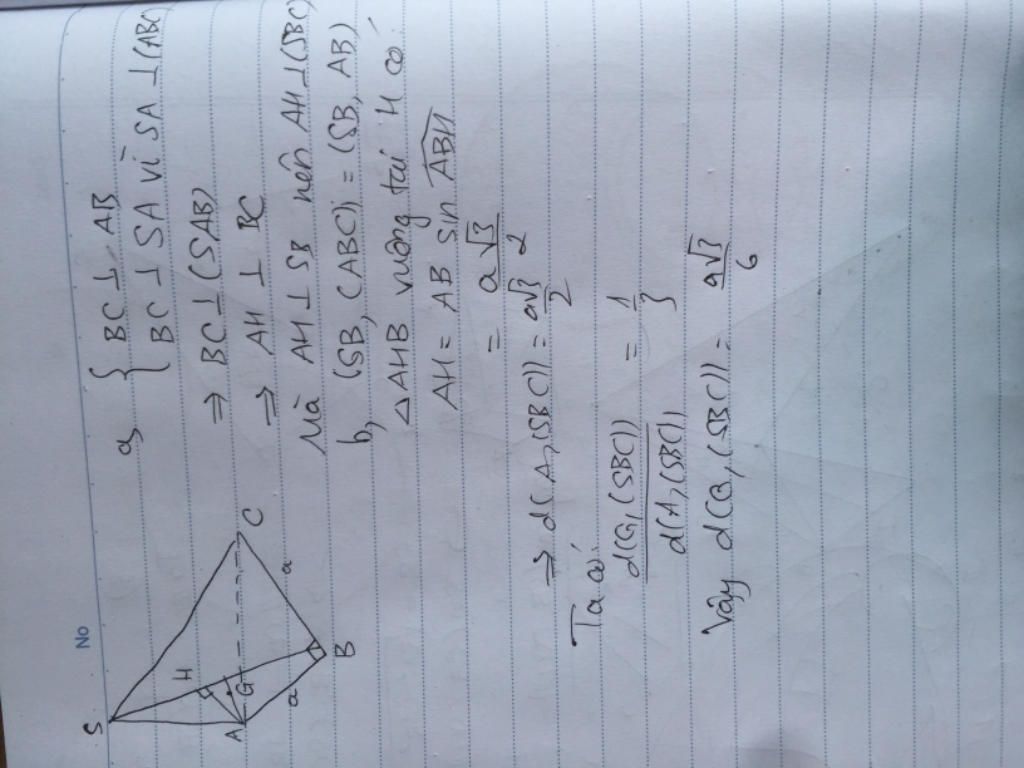 No
S
H
A
G
C
a
a
B
a, { BC ⊥ AB
BC ⊥ SA vì SA ⊥ (ABC)
⇒ BC ⊥ (SAB)
⇒ AH ⊥ BC
Mà AH ⊥ SB nên AH ⊥ (SBC)
b, (SB, (ABC)) = (SB, AB)
△AHB vuông tại H có:
AH = AB sin ABH
= a√3/2
⇒ d(A, (SBC)) = a√3/2
Ta có:
d(G, (SBC))/d(A, (SBC)) = 1/3
Vậy d(G, (SBC)) = a√3/6